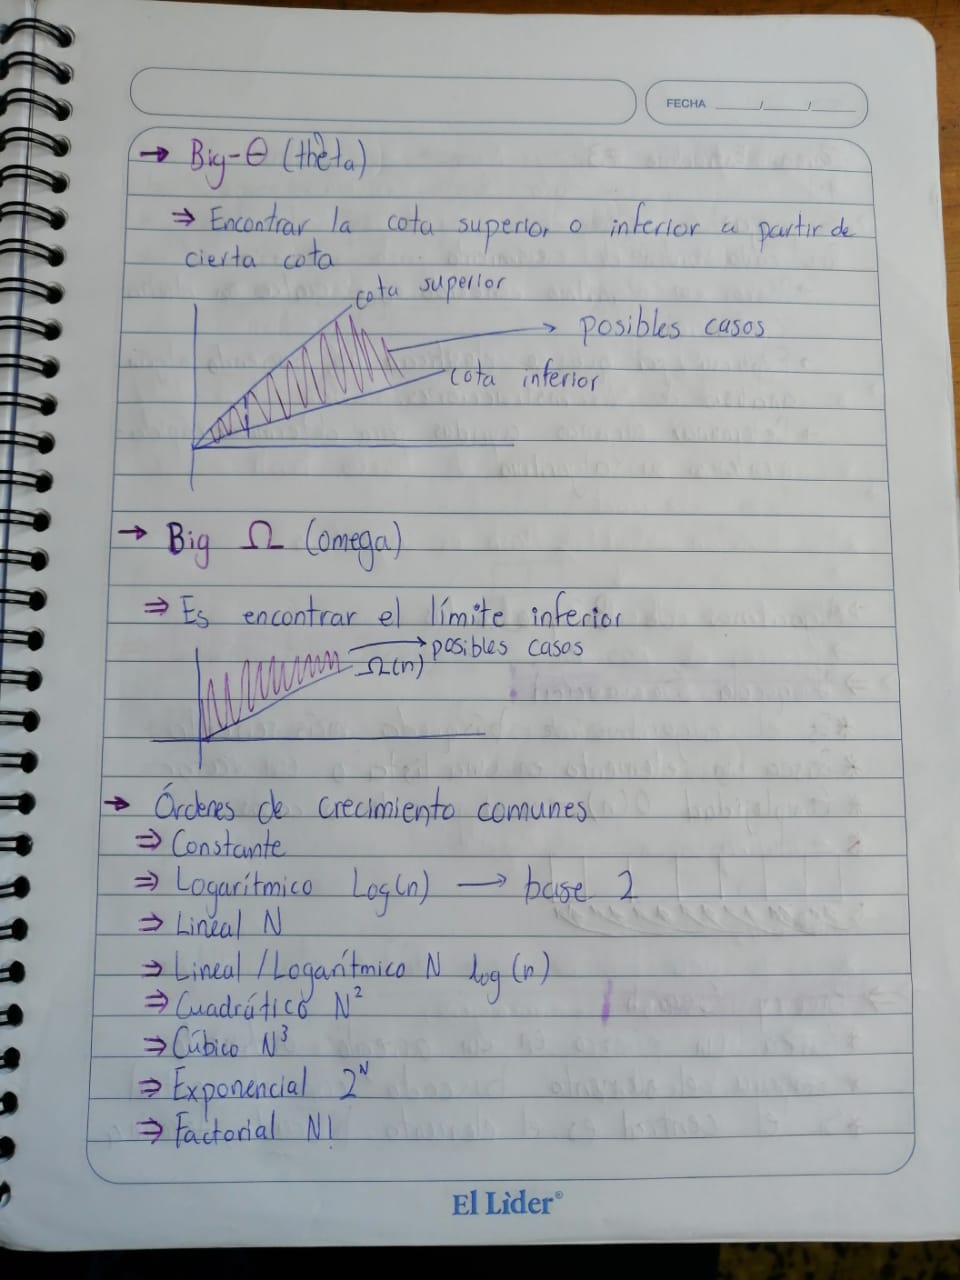 FECHA ___/___/___
→ Big-Θ (theta)
⇒ Encontrar la cota superior o inferior a partir de
cierta cota
cota superior
posibles casos
cota inferior
→ Big Ω (omega)
⇒ Es encontrar el límite inferior
posibles casos
Ω(n)
→ Órdenes de crecimiento comunes
⇒ Constante
⇒ Logarítmico Log(n) → base 2
⇒ Lineal N
⇒ Lineal /Logarítmico N log(n)
⇒ Cuadrático N²
⇒ Cúbico N³
⇒ Exponencial 2ᴺ
⇒ Factorial N!
El Lìder®